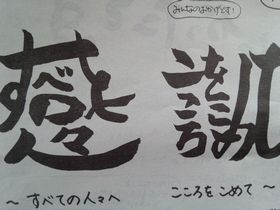 みんなのおかげです!
感
謝
すべての人々
こころをこめて
～ すべての人々へ
こころを こめて ～